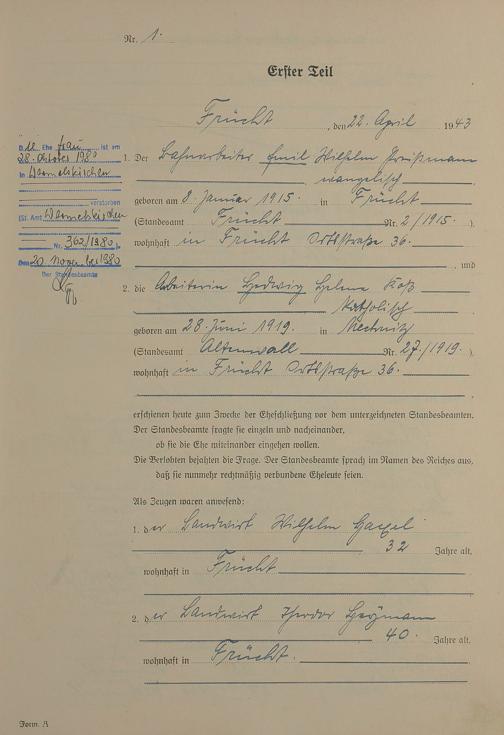 Nr. 1.
Erster Teil
Frücht, den 22. April 1943
Die Ehefrau ist am
28. Oktober 1980
in Wermelskirchen
verstorben
(St. Amt Wermelskirchen
Nr. 362/1980).
Den 20. November 1980
Der Standesbeamte
1. Der Bahnarbeiter Emil Wilhelm
evangelisch
geboren am 8. Januar 1915. in Frücht
(Standesamt Frücht Nr. 2/1915.).
wohnhaft in Frücht Ortsstraße 36.
, und
2. die Arbeiterin Hedwig Helene
katholisch
geboren am 28. Juni 1919. in
(Standesamt Altenwall Nr. 27/1919.)
wohnhaft in Frücht Ortsstraße 36.
erschienen heute zum Zwecke der Eheschließung vor dem unterzeichneten Standesbeamten.
Der Standesbeamte fragte sie einzeln und nacheinander,
ob sie die Ehe miteinander eingehen wollen.
Die Verlobten bejahten die Frage. Der Standesbeamte sprach im Namen des Reiches aus,
daß sie nunmehr rechtmäßig verbundene Eheleute seien.
Als Zeugen waren anwesend:
1. der Landwirt Wilhelm
32 Jahre alt,
wohnhaft in Frücht
2. der Landwirt Theodor
40. Jahre alt.
wohnhaft in Frücht.
Form. A